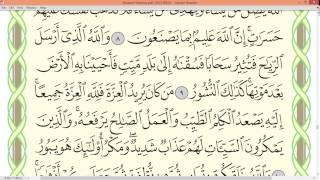 حَسَرَٰتٍ إِنَّ ٱللَّهَ عَلِيمٌۢ بِمَا يَصْنَعُونَ ٨ وَٱللَّهُ ٱلَّذِىٓ أَرْسَلَ
ٱلرِّيَٰحَ فَتُثِيرُ سَحَابًا فَسُقْنَٰهُ إِلَىٰ بَلَدٍ مَّيِّتٍ فَأَحْيَيْنَا بِهِ ٱلْأَرْضَ
بَعْدَ مَوْتِهَا كَذَٰلِكَ ٱلنُّشُورُ ٩ مَن كَانَ يُرِيدُ ٱلْعِزَّةَ فَلِلَّهِ ٱلْعِزَّةُ جَمِيعًا
إِلَيْهِ يَصْعَدُ ٱلْكَلِمُ ٱلطَّيِّبُ وَٱلْعَمَلُ ٱلصَّٰلِحُ يَرْفَعُهُۥ وَٱلَّذِينَ
يَمْكُرُونَ ٱلسَّيِّـَٔاتِ لَهُمْ عَذَابٌ شَدِيدٌ وَمَكْرُ أُو۟لَٰٓئِكَ هُوَ يَبُورُ